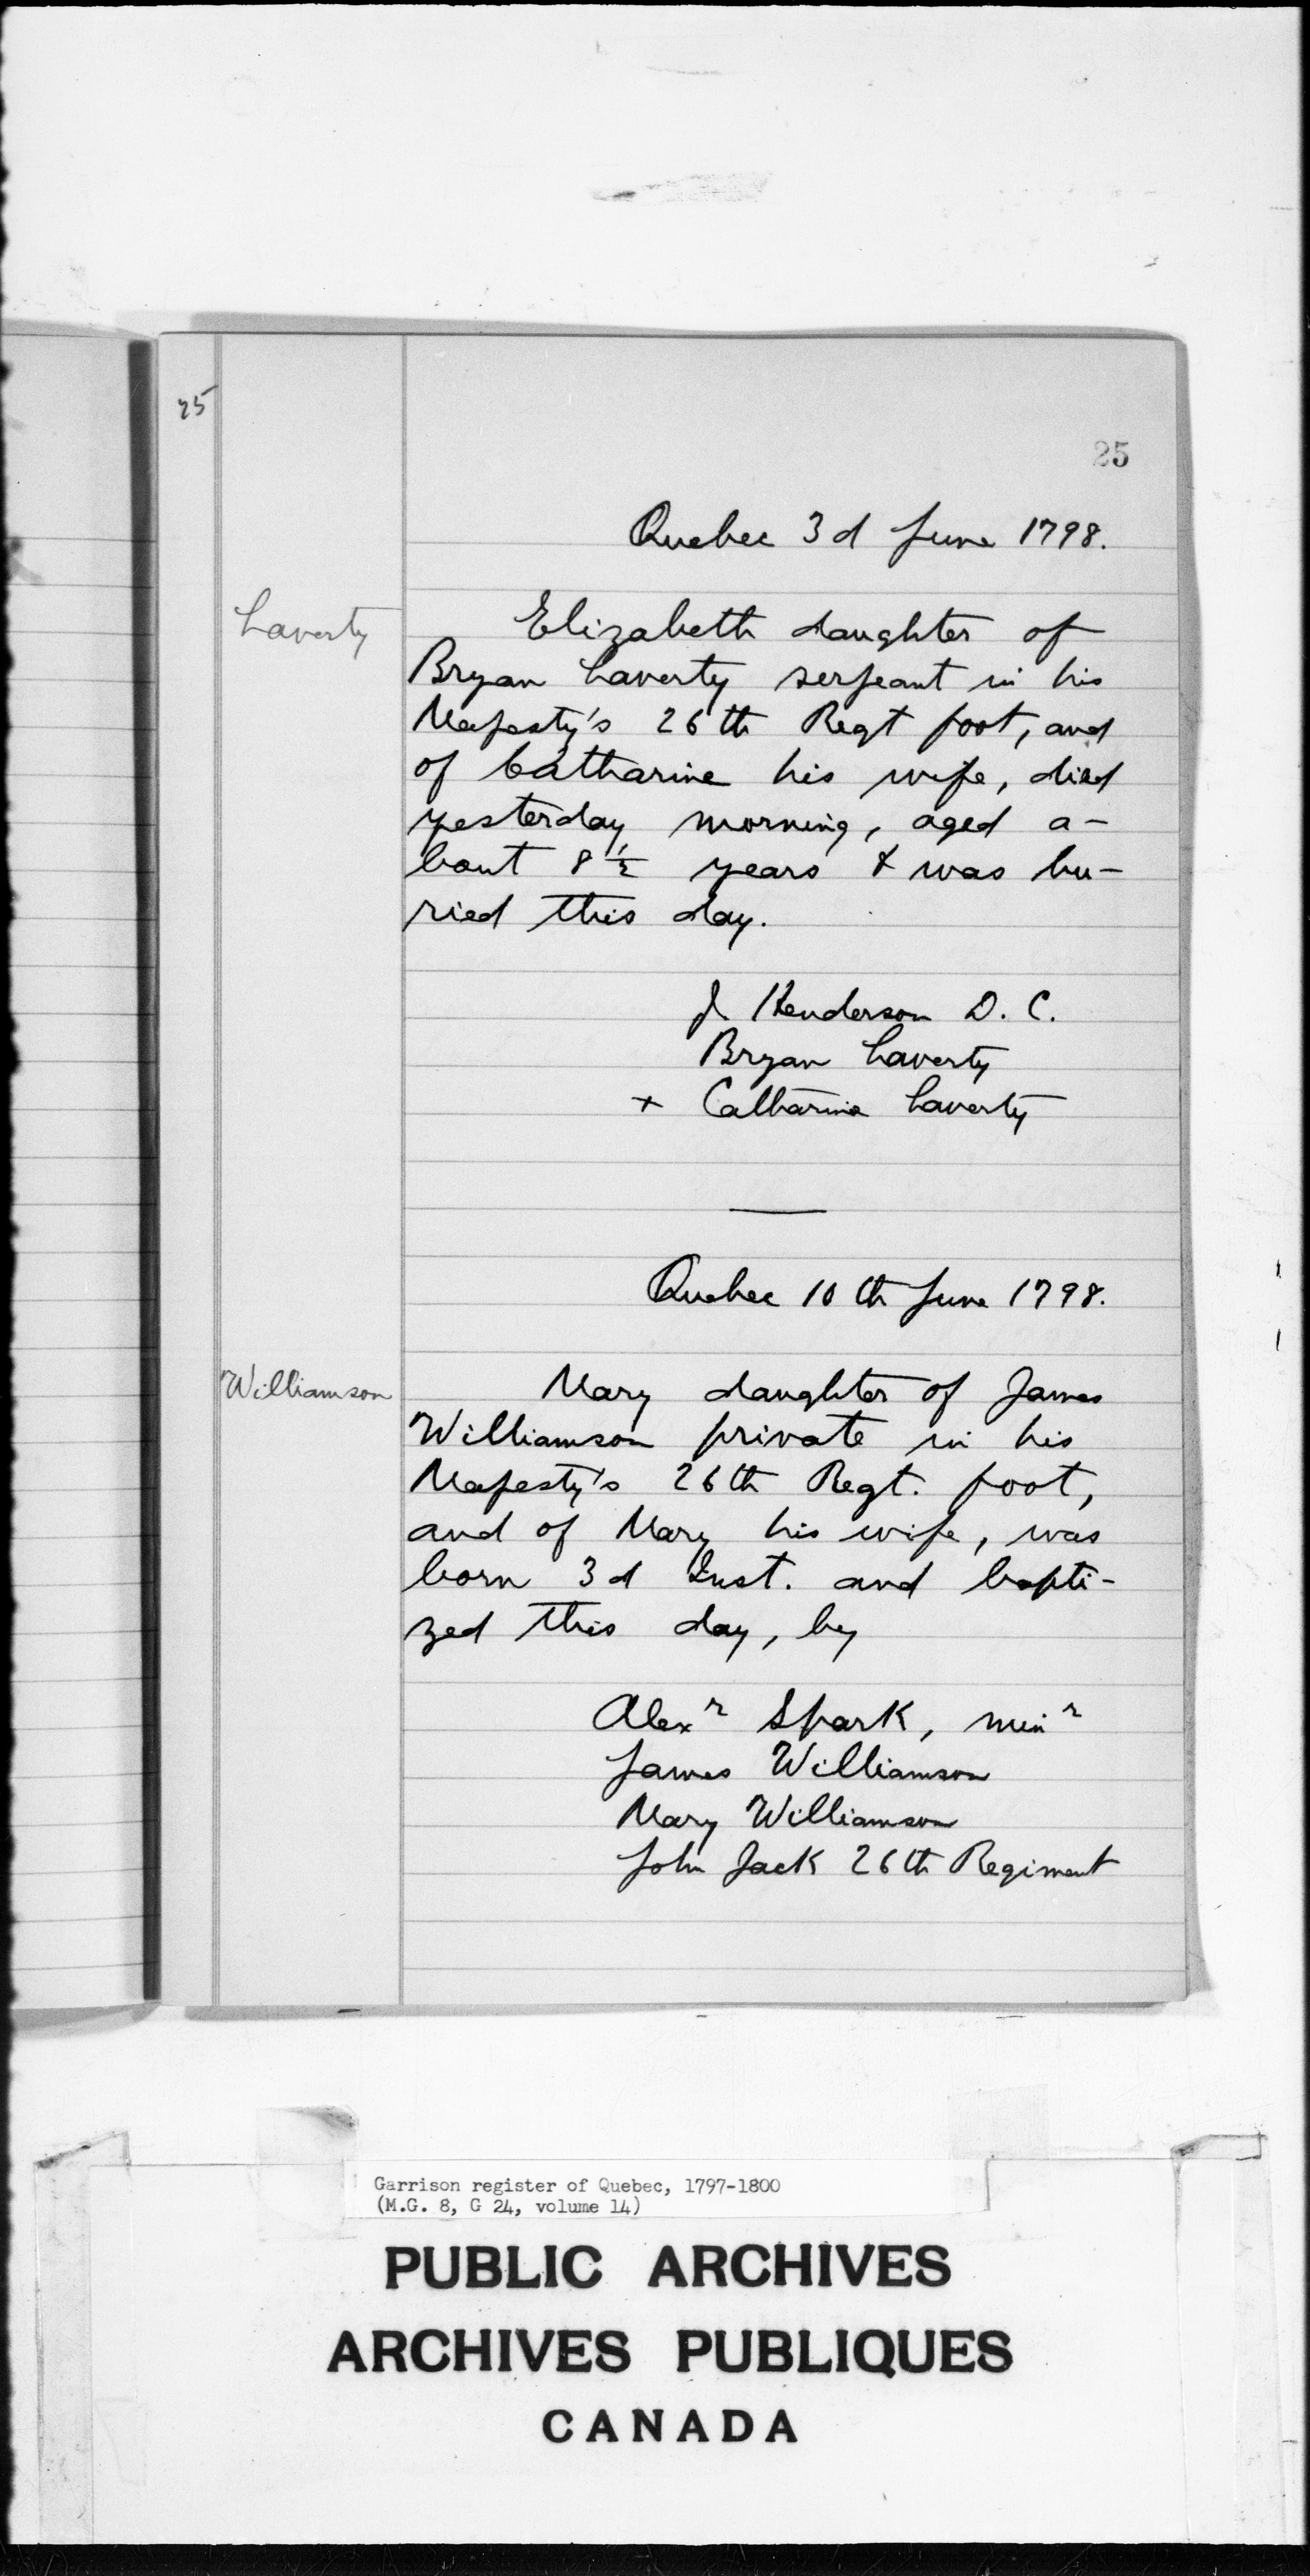 25
25
Quebec 3d June 1798.
Laverty
Elizabeth daughter of
Bryan Laverty serjeant in his
Majesty's 26th Regt foot, and
of Catharine his wife, died
yesterday morning, aged a-
bout 8½ years & was bu-
ried this day.
J Henderson D. C.
Bryan Laverty
+ Catharine Laverty
Quebec 10th June 1798.
Williamson
Mary daughter of James
Williamson private in his
Majesty's 26th Regt. foot,
and of Mary his wife, was
born 3d Inst. and bapti-
zed this day, by
Alexr Spark, minr
James Williamson
Mary Williamson
John Jack 26th Regiment
Garrison register of Quebec, 1797-1800
(M.G. 8, G 24, volume 14)
PUBLIC ARCHIVES
ARCHIVES PUBLIQUES
CANADA